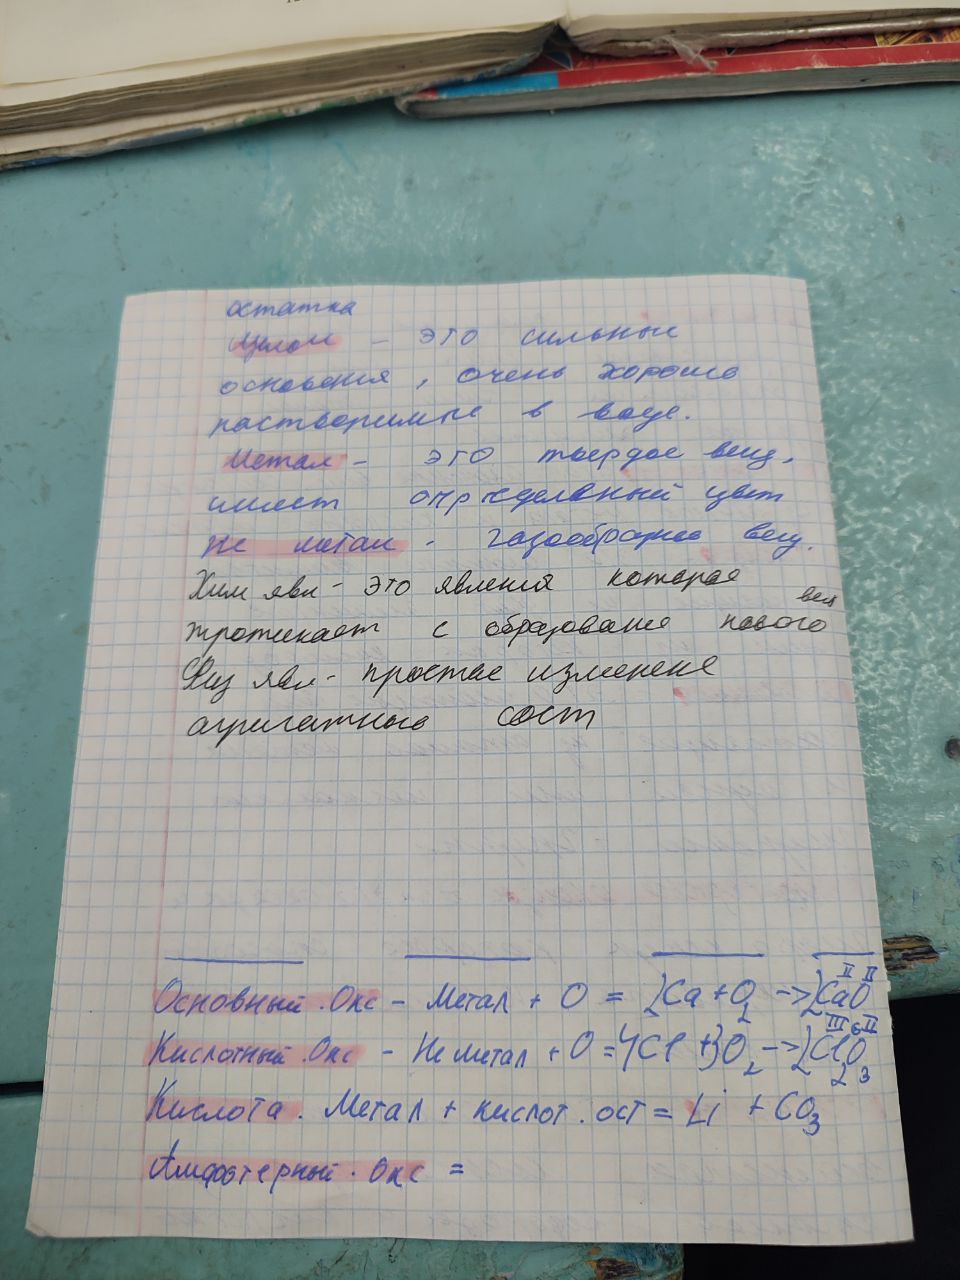 остатка
Щелочи - это сильные
основения, очень хорошо
растворимые в воде.
Метал - это твердое вещ,
имеет определенный цвет
Не метал - газообразное вещ.
Хим явл - это явления которая
протикает с образование нового вещ
Физ явл - простое изменене
агригатного сост
Основный. Окс - Метал + О = 2Ca + O2 -> 2CaO II II
Кислотный. Окс - Не метал + О = 4Cl + 3O2 -> 2Cl2O3 III II
Кислота. Метал + кислот. ост = Li + CO3
Амфотерный. Окс =